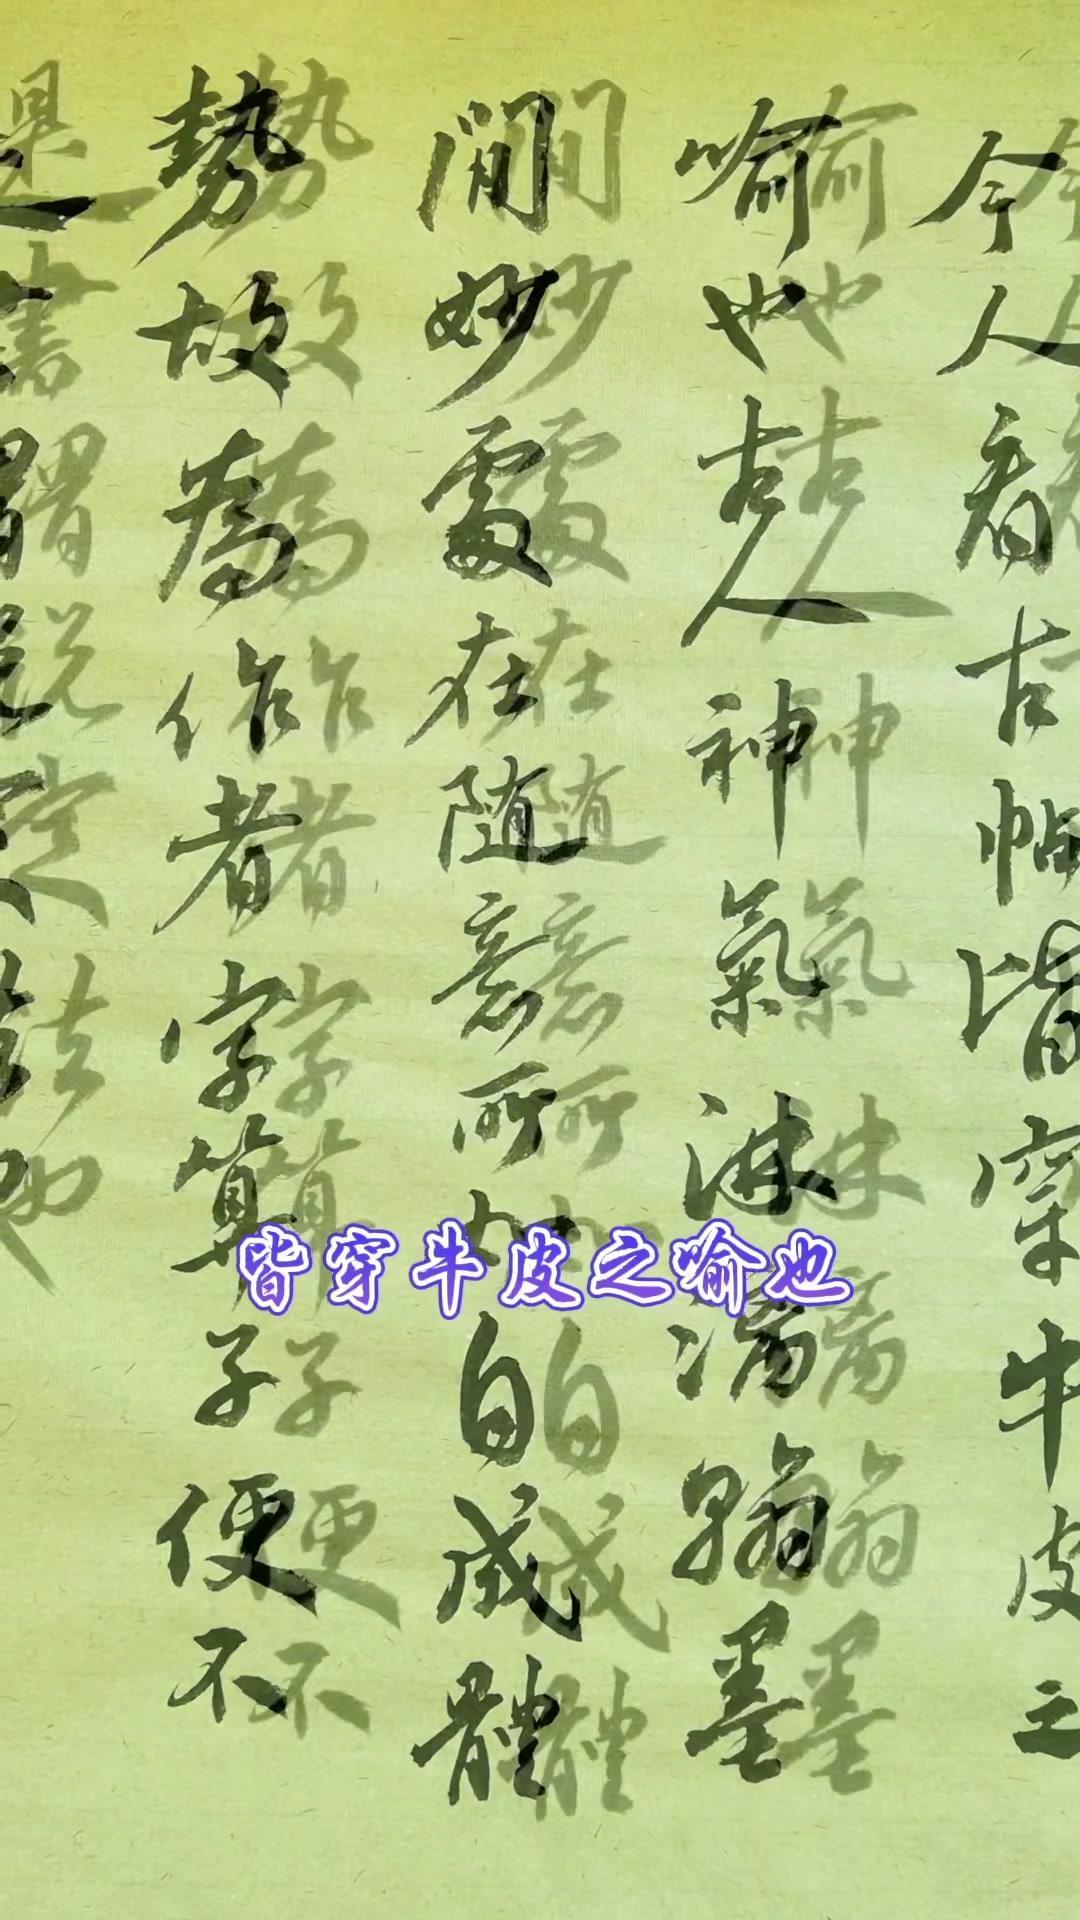 今人看古帖皆穿牛皮之
喻也古人神氣淋漓翰墨
間妙處在随意所如自成體
勢故為作者字算子便不
是書謂説定法也
皆穿牛皮之喻也